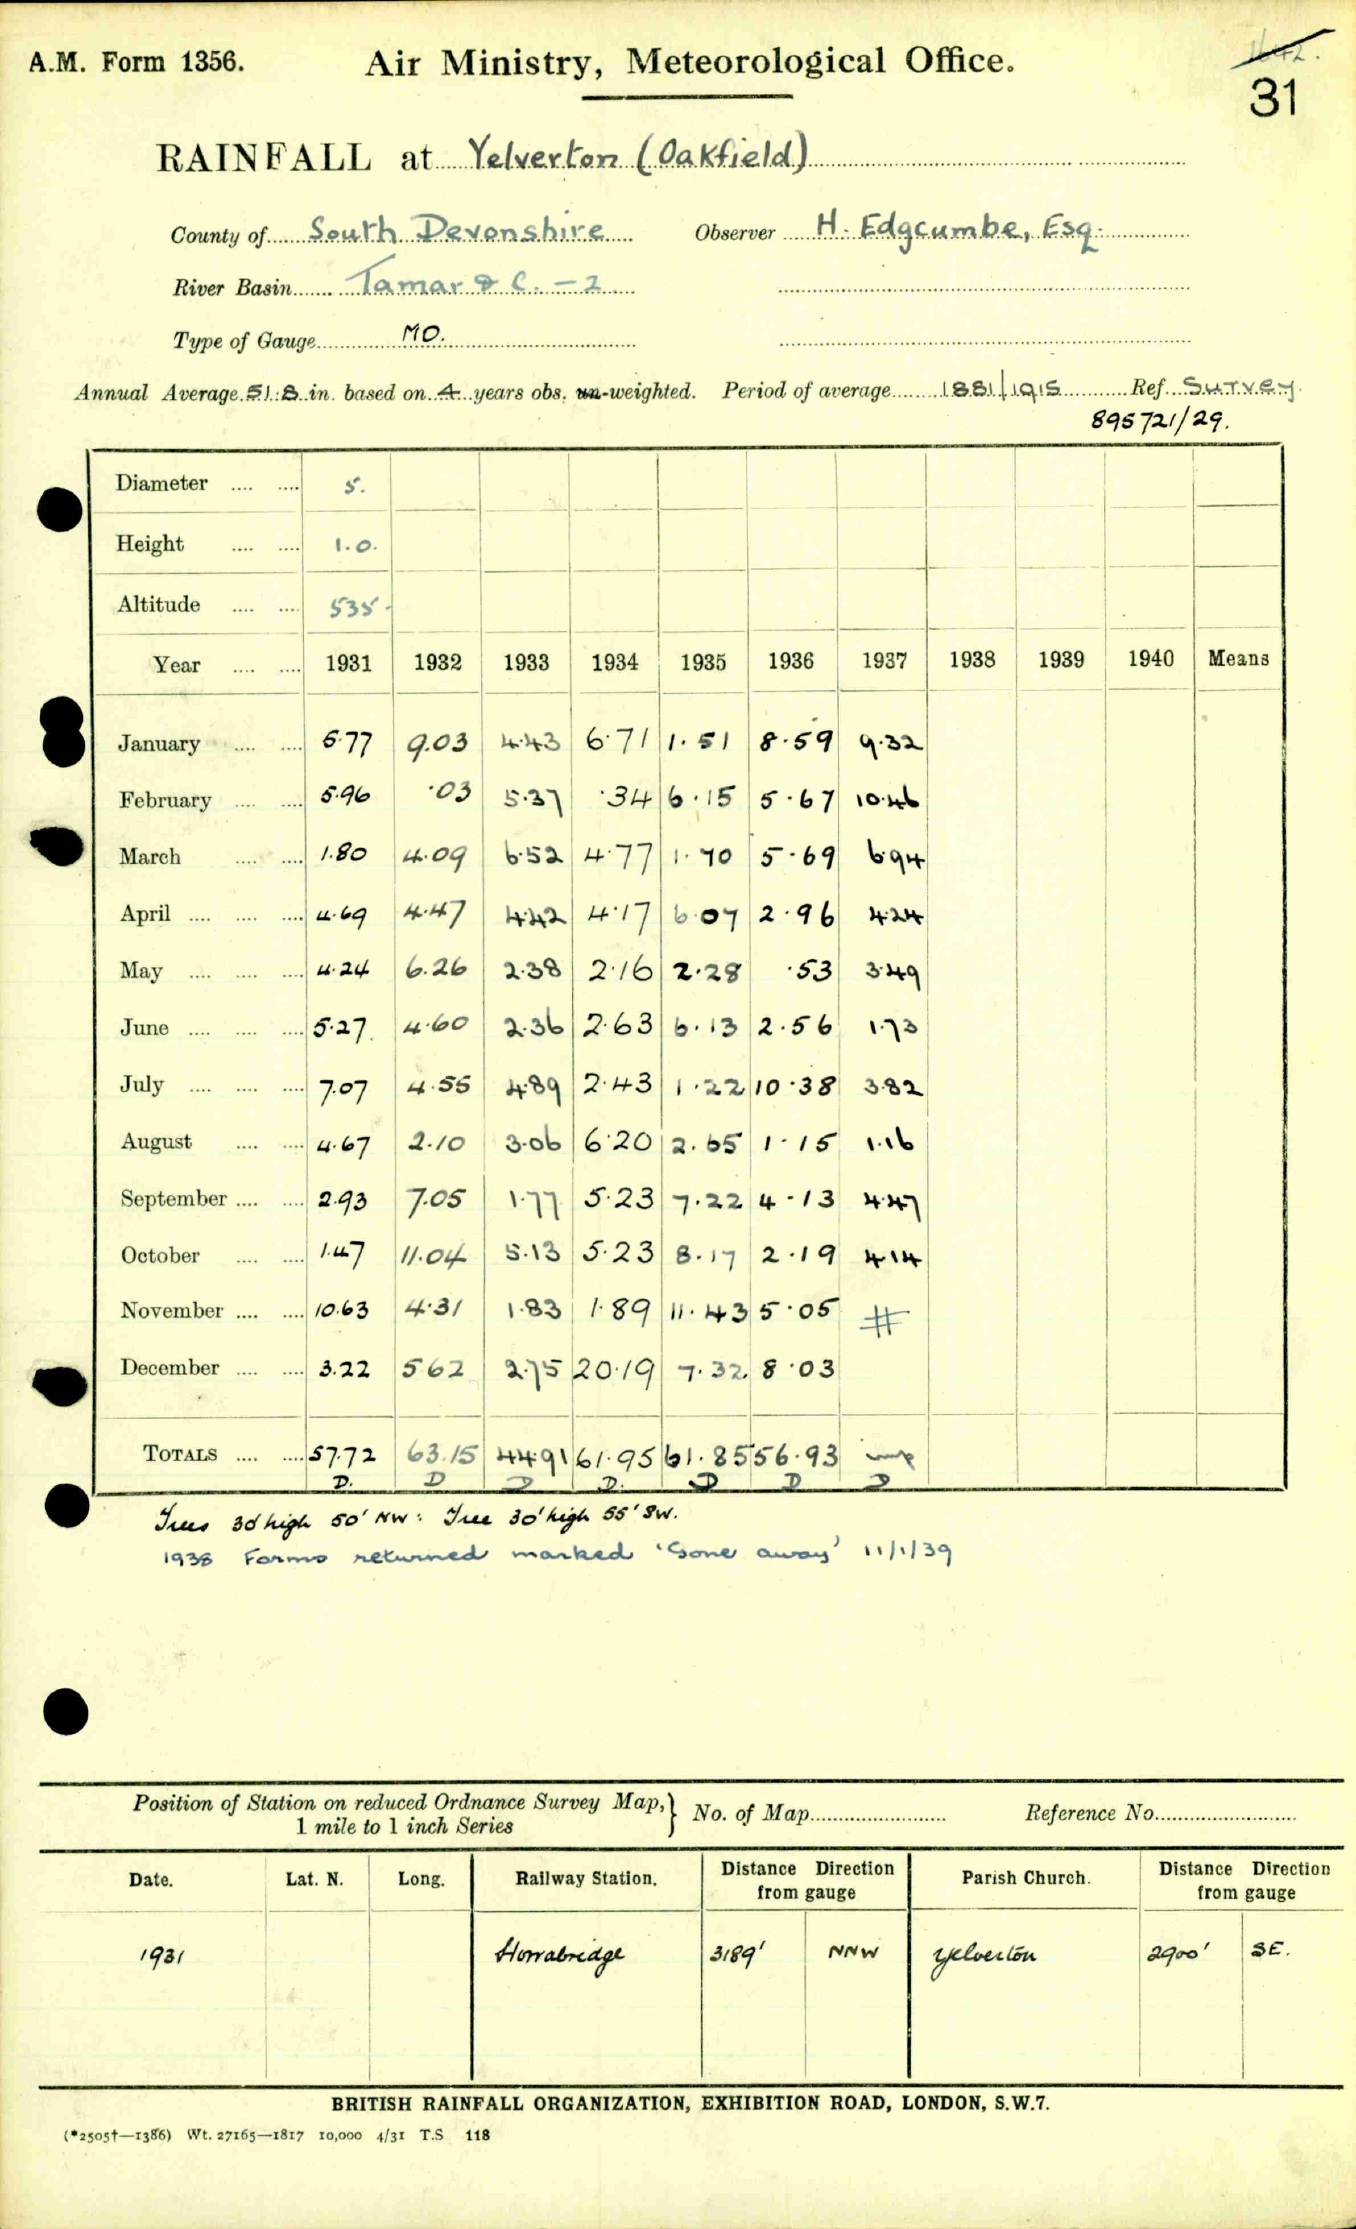 A.M. Form 1356.
Air Ministry, Meteorological Office.
31
RAINFALL at Yelverton (Oakfield)
County of South Devonshire Observer H. Edgcumbe, Esq.
River Basin Tamar & C. - 2
Type of Gauge MO.
Annual Average 51.8 in. based on 4 years obs. un-weighted. Period of average 1881/1915 Ref. Survey
895721/29.
Diameter 5.
Height 1.0.
Altitude 535.
Year 1931 1932 1933 1934 1935 1936 1937 1938 1939 1940 Means
January 5.77 9.03 4.43 6.71 1.51 8.59 9.32
February 5.96 .03 5.37 .34 6.15 5.67 10.46
March 1.80 4.09 6.52 4.77 1.70 5.69 6.94
April 4.69 4.47 4.42 4.17 6.07 2.96 4.24
May 4.24 6.26 2.38 2.16 2.28 .53 3.49
June 5.27 4.60 2.36 2.63 6.13 2.56 1.73
July 7.07 4.55 4.89 2.43 1.22 10.38 3.82
August 4.67 2.10 3.06 6.20 2.65 1.15 1.16
September 2.93 7.05 1.77 5.23 7.22 4.13 4.47
October 1.47 11.04 5.13 5.23 8.17 2.19 4.14
November 10.63 4.31 1.83 1.89 11.43 5.05 #
December 3.22 5 62 2.75 20.19 7.32 8.03
TOTALS 57.72 63.15 44.91 61.95 61.85 56.93 imp
D. D D D. D D D
Trees 30' high 50' NW: Tree 30' high 55' SW.
1938 Forms returned marked 'Gone away' 11/1/39
Position of Station on reduced Ordnance Survey Map, } No. of Map Reference No.
1 mile to 1 inch Series
Date. Lat. N. Long. Railway Station. Distance Direction from gauge Parish Church. Distance Direction from gauge
1931 Horrabridge 3189' NNW Yelverton 2900' SE.
BRITISH RAINFALL ORGANIZATION, EXHIBITION ROAD, LONDON, S.W.7.
(*2505†—1386) Wt. 27165—1817 10,000 4/31 T.S 118